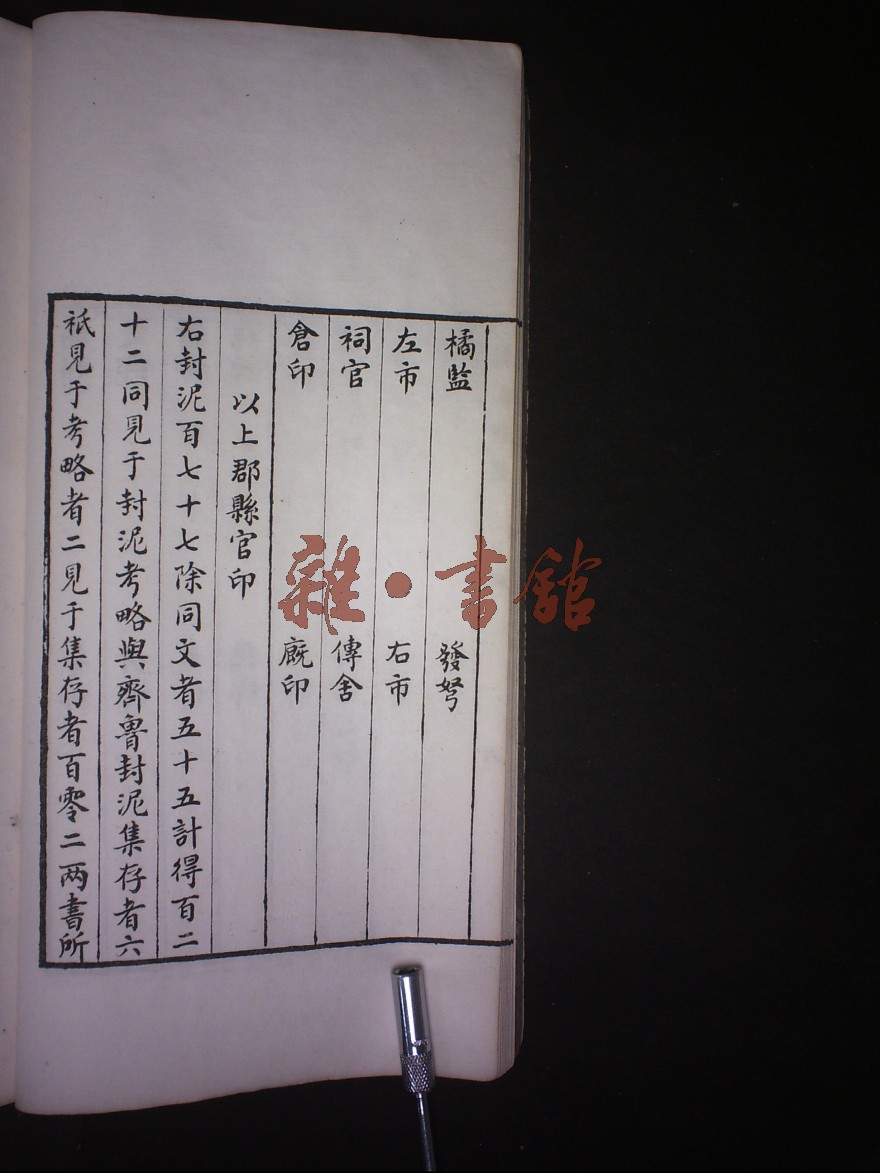 橘監　發弩
左市　右市
祠官　傳舍
倉印　廐印
以上郡縣官印
右封泥百七十七除同文者五十五計得百二
十二同見于封泥考略與齊魯封泥集存者六
祇見于考略者二見于集存者百零二两書所
雜·書館